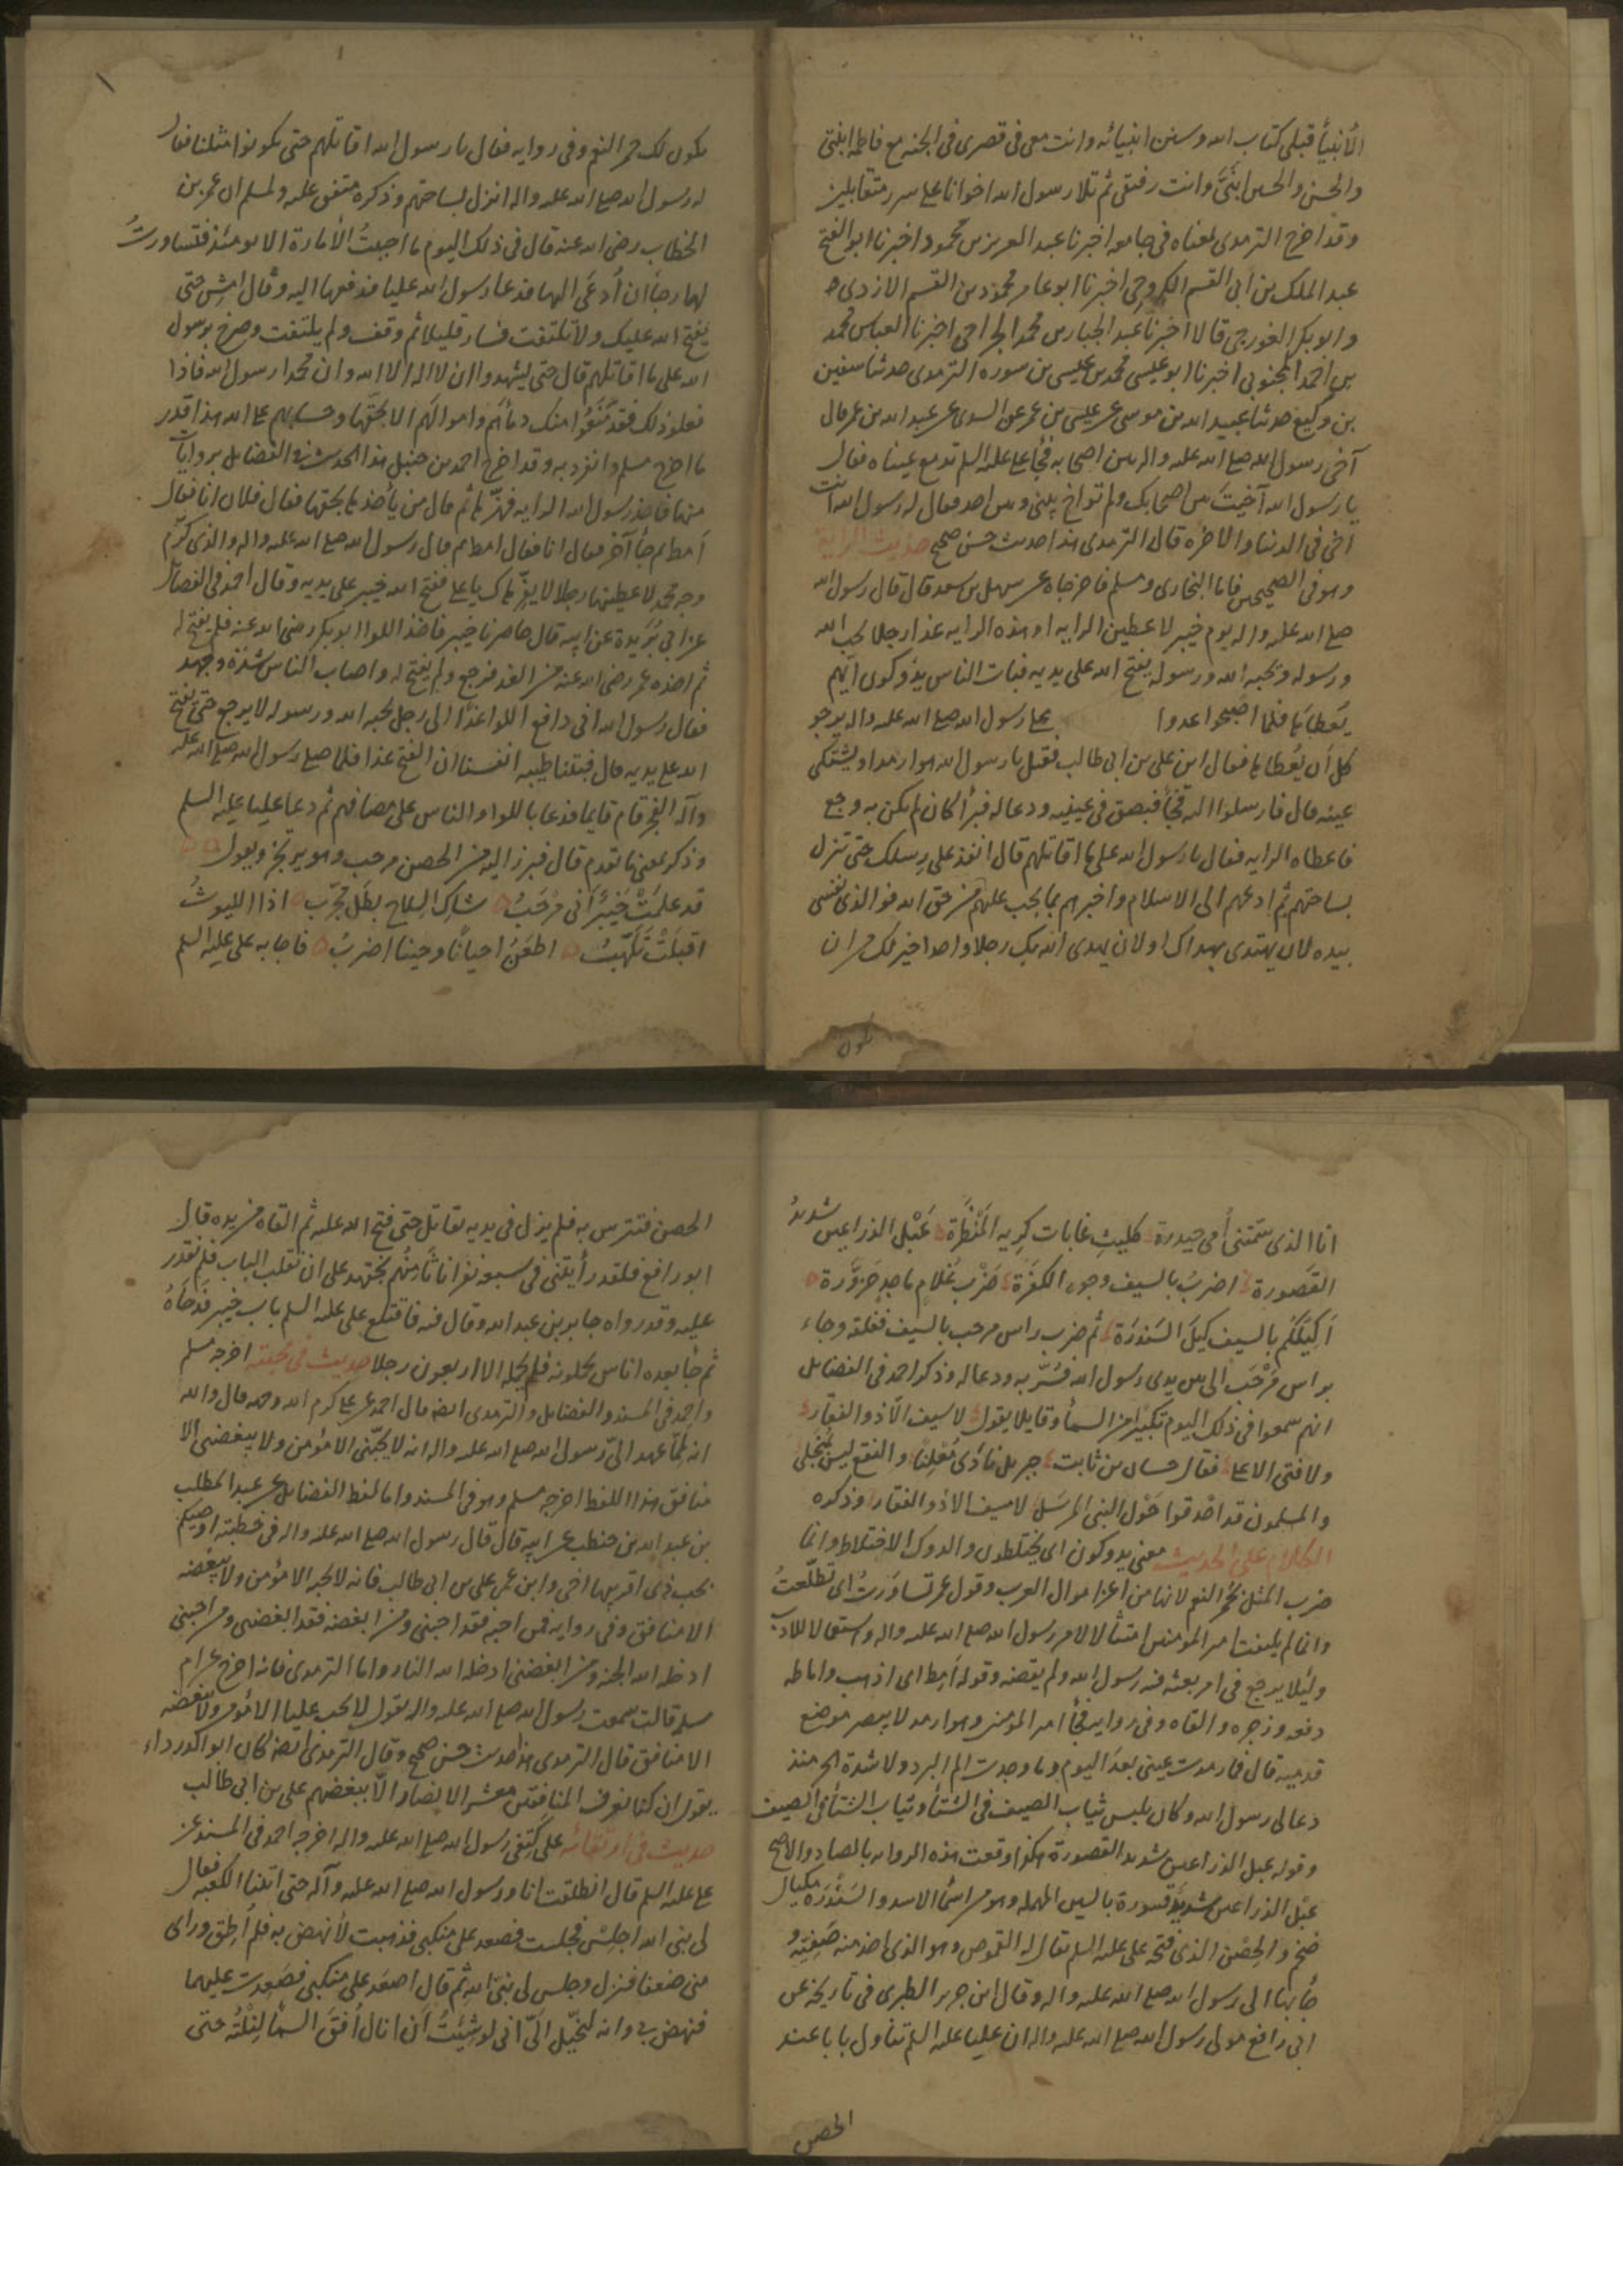 الأنبيأ قبلي كتاب الله وسنن انبيائه وانت معى فى قصرى فى الجنه مع فاطمه ابنتى
والحسن والحسين ابنىَّ وانت رفيقى ثم تلا رسول الله اخوانا على سرر متقابلين
وقد اخرج الترمدى لمعناه فى جامعه اخبرنا عبد العزيز بن محمود اخبرنا ابو الفتح
عبد الملك بن ابى القسم الكروخى اخبرنا ابو عامر محمود بن القسم الازدى
وابو بكر الغورجى قالا اخبرنا عبد الجبار بن محمد الجراحى اخبرنا ابو العباس محمد
بن احمد المحبوبى اخبرنا ابو عيسى محمد بن عيسى بن سوره الترمدى حدثنا سفين
بن وكيع حدثنا عبيد الله بن موسى عن على بن عمر عن السدى عن عبد الله بن عمر قال
آخى رسول الله صلى الله عليه واله بين اصحابه فجأ على عليه السلم تدمع عيناه فقال
يا رسول الله آخيتَ بين اصحابك ولم تواخ بينى وبين احد فقال له رسول الله انت
اخى فى الدنيا والاخره قال الترمدى هذا حديث حسن صحيح حديث الراية
وهو فى الصحيحين فاما البخارى ومسلم فاخرجاه عن سهل بن سعد قال قال رسول الله
صلى الله عليه واله يوم خيبر لاعطين الرايه او هذه الرايه غدا رجلا يحب الله
ورسوله ويحبه الله ورسوله يفتح الله على يديه فبات الناس يدوكون ايّهم
يعطاها فلما اصبحوا غدوا على رسول الله صلى الله عليه واله يرجو
كل أن يُعطاها فقال اين على بن ابى طالب فقيل يا رسول الله هو ارمد او يشتكى
عينه قال فارسلوا اليه فجأ فبصق فى عينيه ودعا له فبرأ كان لم يكن به وجع
فاعطاه الرايه فقال يا رسول الله على ما اقاتلهم قال انفذ على رِسلك حتى تنزل
بساحتهم ثم ادعهم الى الاسلام واخبرهم بما يجب عليهم من حق الله فو الذى نفسى
بيده لان يهتدى بهداك او لان يهدى الله بك رجلا واحدا خير لك من ان
يكون لك حمر النعم وفى روايه فقال يا رسول الله اقاتلهم حتى يكونوا مثلنا فقال
له رسول الله صلى الله عليه واله انزل بساحتهم وذكره متفق عليه ولمسلم ان عمر بن
الخطاب رضى الله عنه قال فى ذلك اليوم ما احببتُ الأمارة الا يومئذ فتساورتُ
لها رجأ أن أُدعَى اليها فدعا رسول الله عليا فدفعها اليه وقال امشِ حتى
يفتح الله عليك ولا تلتفت فسار قليلا ثم وقف ولم يلتفت وصرخ برسول
الله على ما اقاتلهم قال حتى يشهدوا ان لا اله الا الله وان محمدا رسول الله فاذا
فعلوا ذلك فقد مَنَعُوا منك دمأهم واموالهم الا بحقّها وحسابهم على الله هذا قدر
ما اخرج مسلم وانفرد به وقد اخرج احمد بن حنبل هذا الحديث فى الفضايل بروايات
منها فاخذ رسول الله الرايه فهزّها ثم قال من يأخذها بحقها فقال فلان انا فقال
اَمط ثم جأ آخر فقال انا فقال امط ثم قال رسول الله صلى الله عليه واله والذى كرّم
وجه محمد لاعطينها رجلا لا يفرّ هاك يا على ففتح الله خيبر على يديه وقال احمد فى الفضائل
عن ابى بُرَيدة عن ابيه قال حاصرنا خيبر فاخذ اللوا ابو بكر رضى الله عنه فلم يفتح له
ثم اخذه عمر رضى الله عنه من الغد فرجع ولم يفتح له واصاب الناس شدّة وجهد
فقال رسول الله انى دافع اللوا غدًا الى رجل يحبه الله ورسوله لا يرجع حتى يفتح
الله على يديه قال فبتنا طيبه انفسنا ان الفتح غدا فلما صلى رسول الله صلى الله عليه
وآله الفجر قام قايما فدعا باللوا والناس على مصافهم ثم دعا عليا عليه السلم
وذكر بمعنى ما تقدم قال فبرز اليه من الحصن مرحب وهو يرتجز ويقول
قد علمَتْ خَيْبَرُ أَنى مَرْحَبُ شاكِ السِلاح بطَل مجرّب اذا الليوثُ
اقبَلَتْ تَلَهّبُ اطعَنُ احيانًا وحينا اضربُ فاجابه على عليه السلم
انا الذى سَمّتنى أمى حيدرة كليثِ غابات كريه المَنْظَرة عَبْل الذراعين شديدُ
القَصورة اضربُ بالسيف وجوه الكفَرَة ضَرْبَ غُلامٍ ماجد حَزوّرة
اَكِيلُكم بالسيف كيلَ السَندَرَة ثم ضرب راس مرحب بالسيف فقتله وجاء
براس مَرْحَب الى بين يدى رسول الله فسُرّ به ودعا له وذكر احمد فى الفضايل
انهم سمعوا فى ذلك اليوم تكبيرا من السمأ وقايلا يقول لا سيف الّا ذو الفقار
ولا فتى الا على فقال حسان بن ثابت جبريل نادَى مُعلِنًا والنقع ليس بمنجلى
والمسلمون قد احْدقوا حَوْل النبى المرسَل لا سيف الا ذو الفقار وذكره
الكلام على الحديث معنى يدوكون اى يختلطون والدوك الاختلاط وانما
ضرب المثل بحُمر النعم لانها من اعز اموال العرب وقول عمر تساوَرتُ اى تطلّعتُ
وانما لم يلتفت امير المومنين امتثالا لامر رسول الله صلى الله عليه واله واستعمالا للادب
ولئلا يرجع فى امر بعثه فيه رسول الله ولم يقضه وقوله اَمِط اى اذهب واماطه
دفعه وزجره والقاه وفى روايه فجأ امير المومنين وهو ارمد لا يبصر موضع
قدميه قال فما رمدت عينى بعدَ اليوم وما وجدت الم البرد ولا شدة الحر منذ
دعا لى رسول الله وكان يلبس ثياب الصيف فى الشتأ وثياب الشتأ فى الصيف
وقوله عبل الذراعين شديد القصورة هكذا وقعت هذه الروايه بالصاد والاصح
عبْل الذراعين شديد قسورة بالسين المهمله وهو من اسمأ الاسد والسَنْدَرَة مكيال
ضخم والحِصْن الذى فتحه على عليه السلم يقال له القموص وهو الذى اخذ منه صَفِيّه و
جأ بها الى رسول الله صلى الله عليه واله وقال ابن جرير الطبرى فى تاريخه عن
ابى رافع مولى رسول الله صلى الله عليه واله ان عليا عليه السلم تناول بابا عند
الحصن
الحصن فتترس به فلم يزل فى يديه يقاتل حتى فتح الله عليه ثم القاه من يده قال
ابو رافع فلقد رأيتنى فى سبعه نفر انا ثامِنُهم نجتهد على ان نقلب الباب فلم نقدر
عليه وقد رواه جابر بن عبد الله وقال فيه فاقتلع على عليه السلم باب خيبر فدَحَاهُ
ثم جأ بعده اناس يحملونه فلم يحمله الا اربعون رجلا حديث فى محبته اخرجه مسلم
واحمد فى المسند والفضايل والترمدى ايضا قال احمد عن على كرم الله وجهه قال والله
انه لَمّا عهد الىّ رسول الله صلى الله عليه واله انه لا يُحبّنى الا مؤمن ولا يبغضنى الا
منافق هذا اللفظ اخرجه مسلم وهو فى المسند واما لفظ الفضايل عن عبد المطلب
بن عبد الله بن حنطب عن ابيه قال قال رسول الله صلى الله عليه واله فى خطبته اوصيكم
بحب ذى اقربيها اخى وابن عمى على بن ابى طالب فانه لا يحبه الا مؤمن ولا يبغضه
الا منافق وفى روايه فمن احبه فقد احبنى ومن ابغضه فقد ابغضنى ومن احبنى
ادخله الله الجنه ومن ابغضنى ادخله الله النار واما الترمدى فانه اخرج عن ام
سلمه قالت سمعت رسول الله صلى الله عليه واله يقول لا يحب عليا الا مؤمن ولا يبغضه
الا منافق قال الترمدى هذا حديث حسن صحيح وقال الترمدى ايضا كان ابو الدرداء
يقول ان كنا نعرف المنافقين معشر الانصار الّا ببغضهم على بن ابى طالب
حديث فى ارتقائه على كتفى رسول الله صلى الله عليه واله اخرجه احمد فى المسند عن
على عليه السلم قال انطلقت انا ورسول الله صلى الله عليه وآله حتى اتينا الكعبه فقال
لى نبى الله اجلِسْ فجلست فصعد على منكبى فذهبت لأنهض به فلم اُطِق وراى
منى ضعفا فنزل وجلس لى نبى الله ثم قال اصعَد على منكبى فصَعِدت عليهما
فنهض بى وانه ليُخيّل الىّ انى لو شِئتُ أن انال اُفقَ السمأ لنِلْتُه حتى